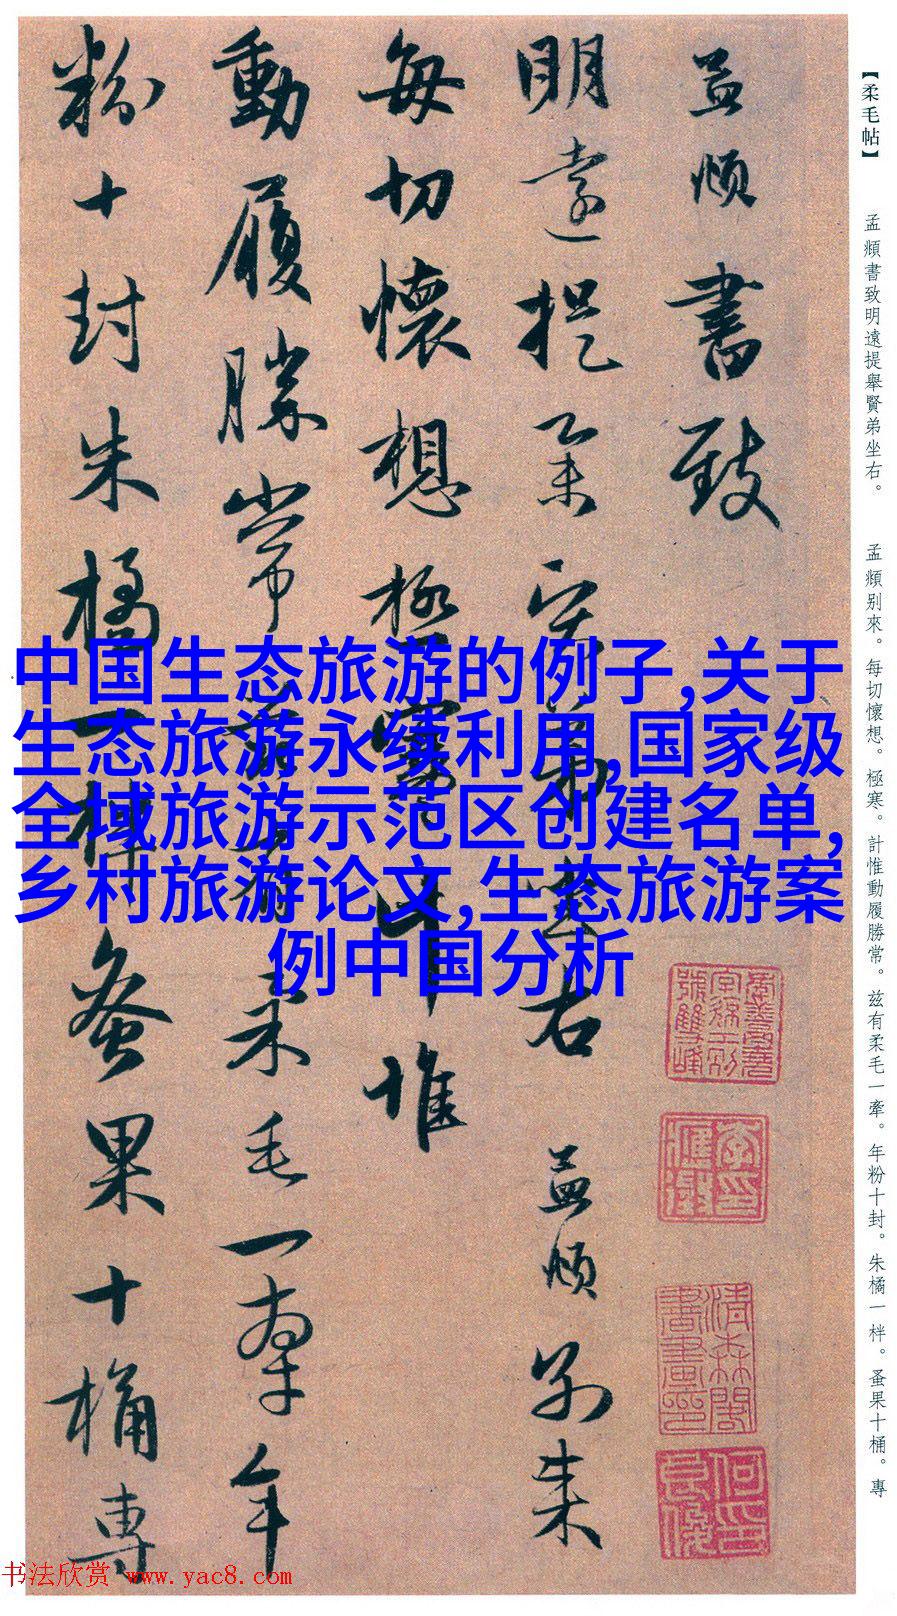 【柔毛帖】
孟頫書致明遠提舉賢弟坐右。
孟頫别來。每切懷想。極寒。計惟動履勝常。兹有柔毛一牽。年粉十封。朱橘一柈。蚤果十桶。專
孟頫書致
明遠提舉賢弟坐右 孟頫别來
每切懷想極寒計惟
動履勝常兹有柔毛一牽年
粉十封朱橘一柈蚤果十桶專
中国生态旅游的例子,关于
生态旅游永续利用,国家级
全域旅游示范区创建名单,
乡村旅游论文,生态旅游案
例中国分析
书法欣赏 www.yac8.com